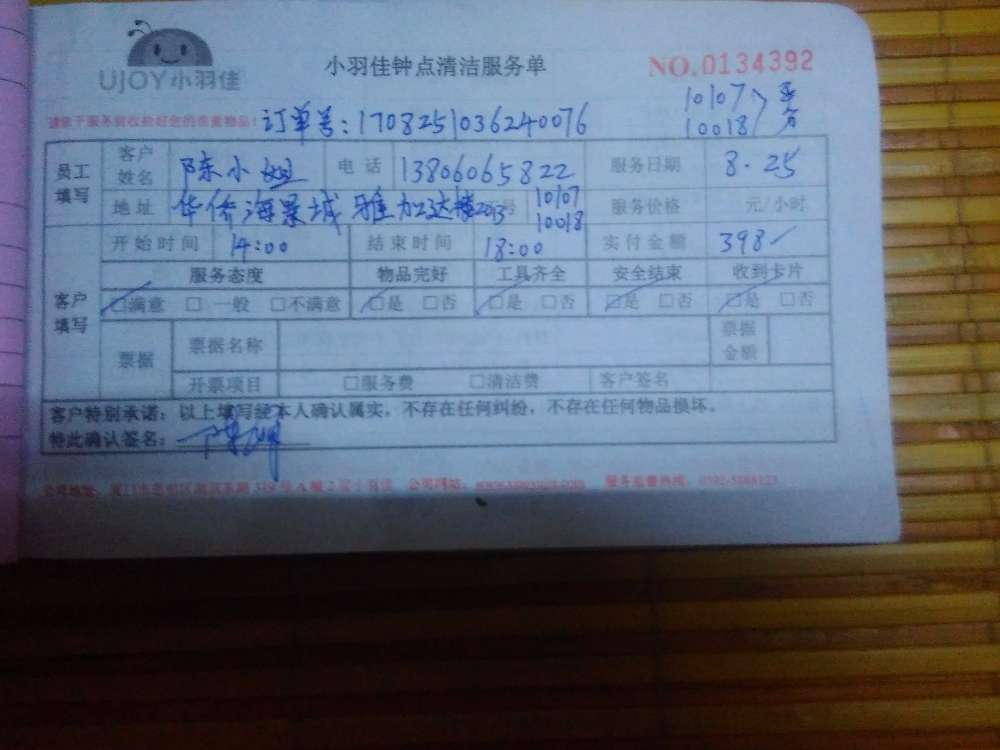 UJOY小羽佳
小羽佳钟点清洁服务单
NO.0134392
请您于服务前收拾好您的贵重物品!
订单号:1708251036240076
10107
10018
员工填写
客户姓名 陈小姐 电话 13806065822 服务日期 8.25
地址 华侨海景城雅加达楼 号 10107 10018 服务价格 元/小时
客户填写
开始时间 14:00 结束时间 18:00 实付金额 398
服务态度 物品完好 工具齐全 安全结束 收到卡片
□满意 □一般 □不满意 □是 □否 □是 □否 □是 □否 □是 □否
票据 票据名称 票据金额
开票项目 □服务费 □清洁费 客户签名
客户特别承诺:以上填写经本人确认属实,不存在任何纠纷,不存在任何物品损坏。
特此确认签名:
公司地址: 公司网站: 服务监督热线: